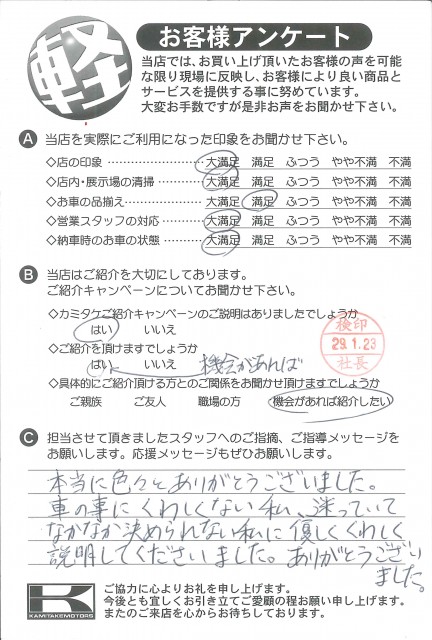 軽
お客様アンケート
当店では、お買い上げ頂いたお客様の声を可能
な限り現場に反映し、お客様により良い商品と
サービスを提供する事に努めています。
大変お手数ですが是非お声をお聞かせ下さい。
A 当店を実際にご利用になった印象をお聞かせ下さい。
◇店の印象 …………………… 大満足 満足 ふつう やや不満 不満
◇店内・展示場の清掃 ………… 大満足 満足 ふつう やや不満 不満
◇お車の品揃え ………………… 大満足 満足 ふつう やや不満 不満
◇営業スタッフの対応 ………… 大満足 満足 ふつう やや不満 不満
◇納車時のお車の状態 ………… 大満足 満足 ふつう やや不満 不満
B 当店はご紹介を大切にしております。
ご紹介キャンペーンについてお聞かせ下さい。
◇カミタケご紹介キャンペーンのご説明はありましたでしょうか
はい いいえ
検印
29.1.23
社長
◇ご紹介を頂けますでしょうか
はい いいえ 機会があれば
◇具体的にご紹介頂ける方とのご関係をお聞かせ頂けますでしょうか
ご親族 ご友人 職場の方 機会があれば紹介したい
C 担当させて頂きましたスタッフへのご指摘、ご指導メッセージを
お願いします。応援メッセージもぜひお願いします。
本当に色々とありがとうございました。
車の事にくわしくない私、迷っていて
なかなか決められない私に優しくくわしく
説明してくださいました。ありがとうござい
ました。
K
KAMITAKEMOTORS
ご協力に心よりお礼を申し上げます。
今後とも宜しくお引き立てご愛顧の程お願い申し上げます。
またのご来店を心からお待ちしております。